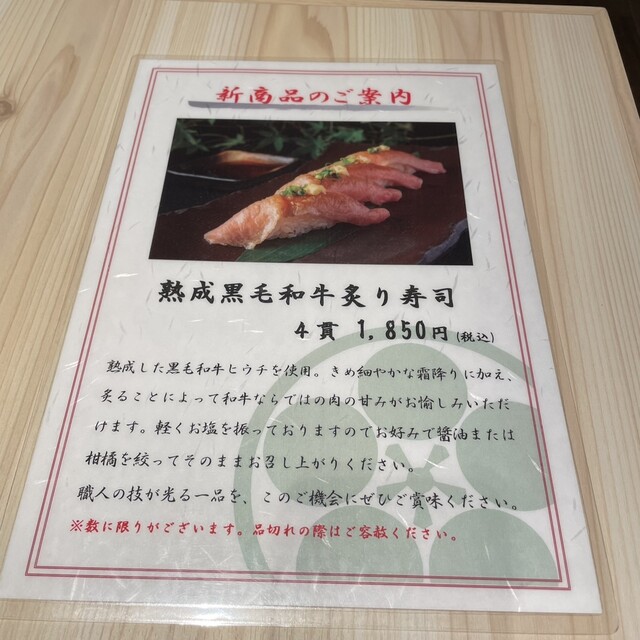 新商品のご案内
熟成黒毛和牛炙り寿司
4貫 1,850円(税込)
熟成した黒毛和牛ヒウチを使用。きめ細やかな霜降りに加え、
炙ることによって和牛ならではの肉の甘みがお愉しみいただ
けます。軽くお塩を振っておりますのでお好みで醤油または
柑橘を絞ってそのままお召し上がりください。
職人の技が光る一品を、このご機会にぜひご賞味ください。
※数に限りがございます。品切れの際はご容赦ください。